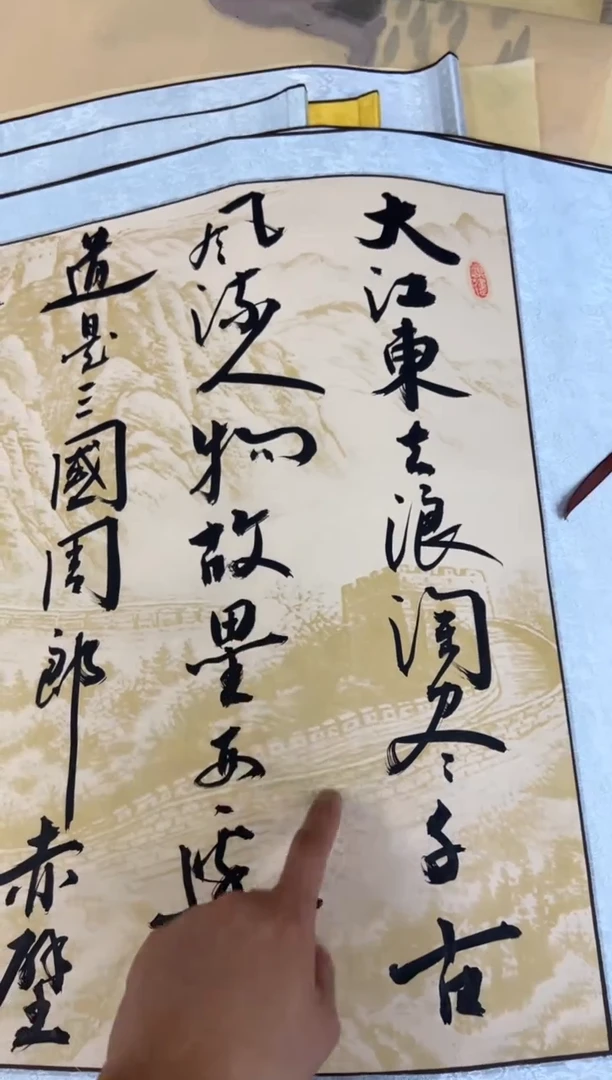 大江東去浪淘尽千古
風流人物故壘西邊
道是三國周郎赤壁